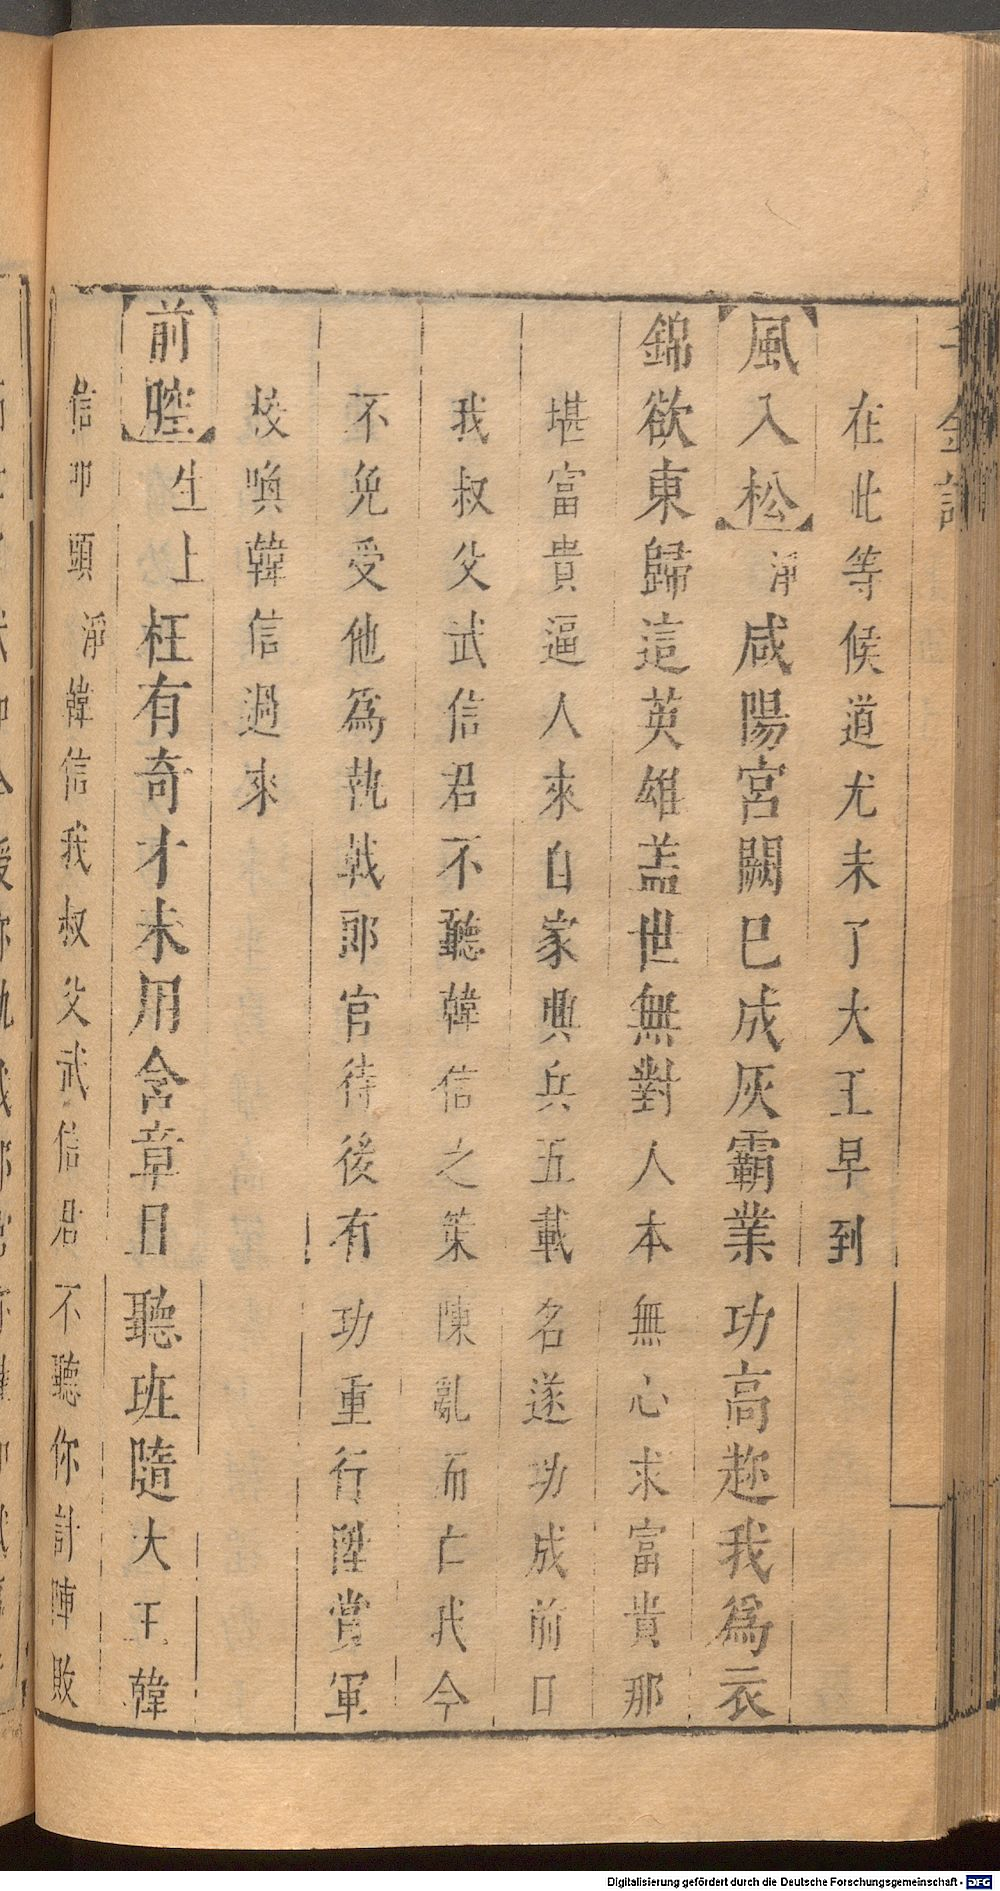 千金記
在此等候道尤未了大王早到
風入松淨咸陽宮闕巳成灰霸業功高趂我爲衣
錦欲東歸這英雄蓋世無對人本無心求富貴那
堪富貴逼人來自家興兵五載名遂功成前日
我叔父武信君不聽韓信之策陳亂而亡我今
不免受他爲執戟郎官待後有功重行陞賞軍
校喚韓信過來
前腔生上枉有奇才未用含章日聽班隨大王韓
信叩頭淨韓信我叔父武信君不聽你計陣敗
Digitalisierung gefördert durch die Deutsche Forschungsgemeinschaft - DFG